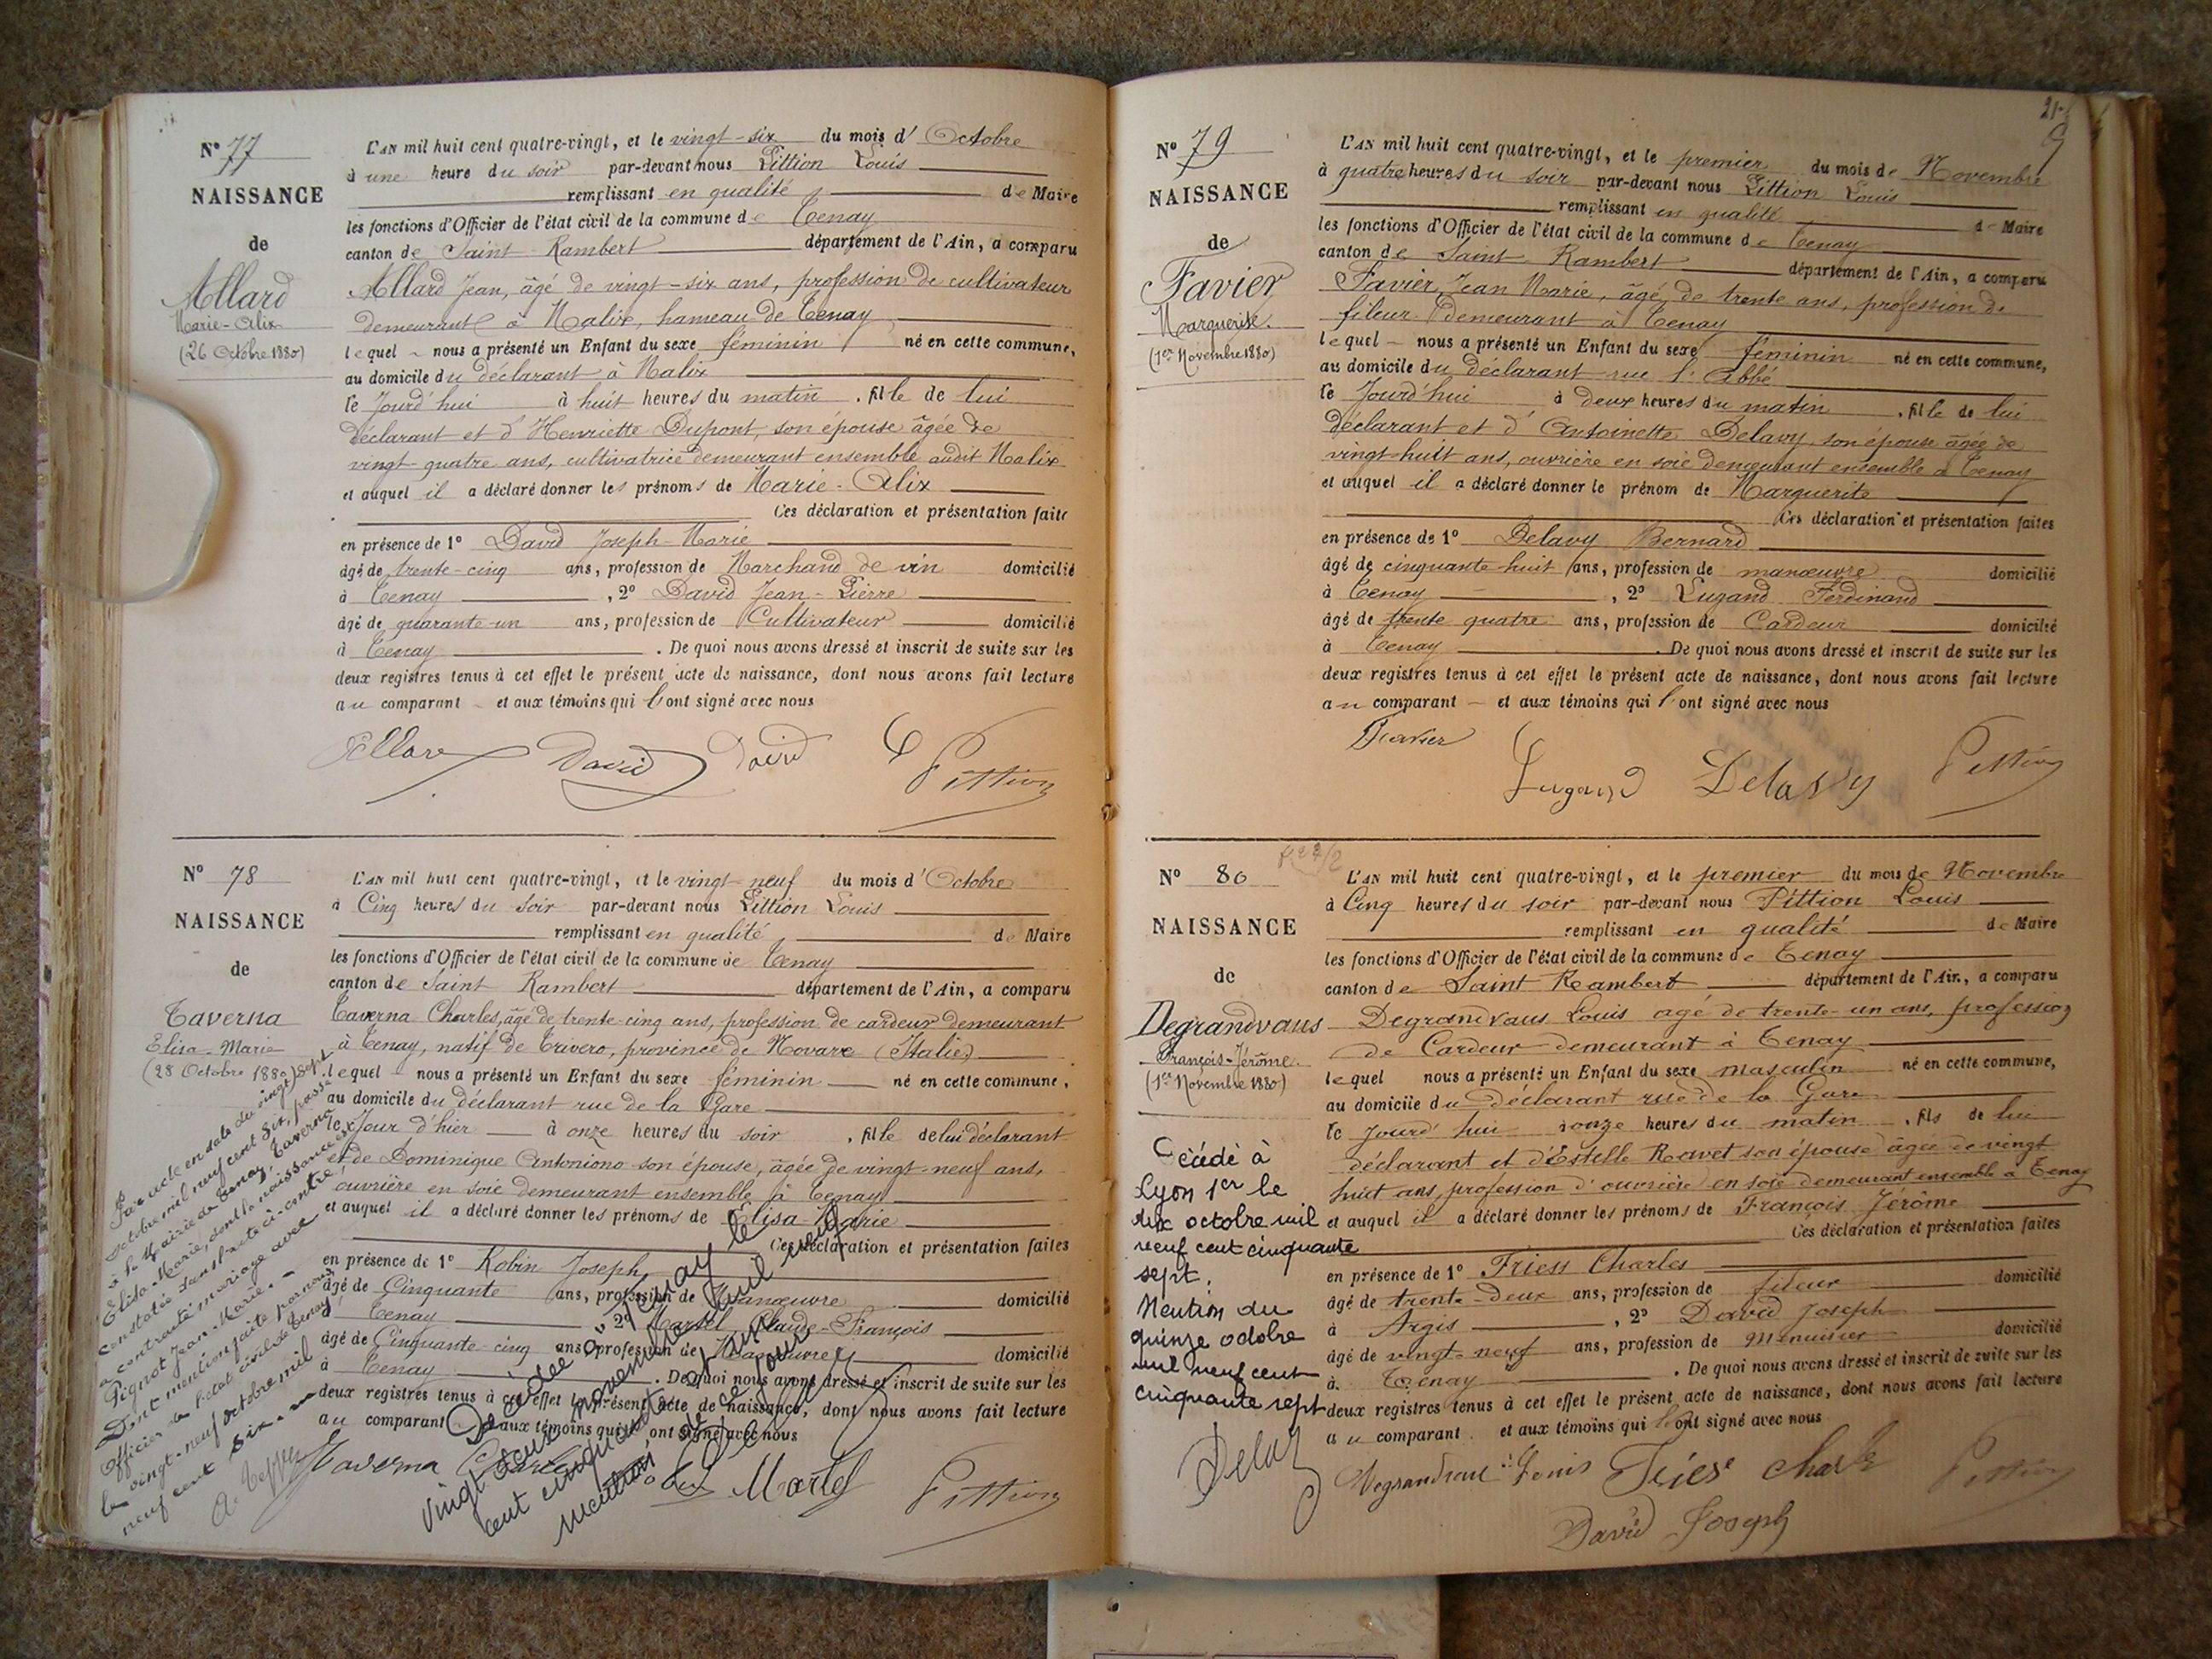 N° 77
NAISSANCE
de
Allard
Marie-Alix
(26 Octobre 1880)
L'AN mil huit cent quatre-vingt, et le vingt-six du mois d'Octobre
à une heure du soir par-devant nous Pittion Louis
remplissant en qualité de Maire
les fonctions d'Officier de l'état civil de la commune de Tenay
canton de Saint-Rambert département de l'Ain, a comparu
Allard Jean, âgé de vingt-six ans, profession de cultivateur
demeurant à Malix, hameau de Tenay
lequel nous a présenté un Enfant du sexe féminin né en cette commune,
au domicile du déclarant à Malix
le Jourd'hui à huit heures du matin, fille de lui
déclarant et d'Henriette Dupont, son épouse âgée de
vingt-quatre ans, cultivatrice demeurant ensemble audit Malix
et auquel il a déclaré donner les prénoms de Marie-Alix
Ces déclaration et présentation faite
en présence de 1° David Joseph-Marie
âgé de trente-cinq ans, profession de Marchand de vin domicilié
à Tenay, 2° David Jean-Pierre
âgé de quarante-un ans, profession de Cultivateur domicilié
à Tenay. De quoi nous avons dressé et inscrit de suite sur les
deux registres tenus à cet effet le présent acte de naissance, dont nous avons fait lecture
au comparant et aux témoins qui l'ont signé avec nous
Allard David David Pittion
N° 78
NAISSANCE
de
Taverna
Elisa-Marie
(28 Octobre 1880)
L'AN mil huit cent quatre-vingt, et le vingt-neuf du mois d'Octobre
à Cinq heures du soir par-devant nous Pittion Louis
remplissant en qualité de Maire
les fonctions d'Officier de l'état civil de la commune de Tenay
canton de Saint Rambert département de l'Ain, a comparu
Taverna Charles, âgé de trente-cinq ans, profession de cardeur demeurant
à Tenay, natif de Trivero, province de Novare (Italie)
lequel nous a présenté un Enfant du sexe féminin né en cette commune,
au domicile du déclarant rue de la Gare
le Jour d'hier à onze heures du soir, fille de lui déclarant
et de Dominique Antoniono son épouse, âgée de vingt-neuf ans,
ouvrière en soie demeurant ensemble à Tenay
et auquel il a déclaré donner les prénoms de Elisa-Marie
Ces déclaration et présentation faites
en présence de 1° Robin Joseph
âgé de Cinquante ans, profession de Manœuvre domicilié
à Tenay, 2° Martel Claude-François
âgé de Cinquante-cinq ans, profession de Manœuvre domicilié
à Tenay. De quoi nous avons dressé et inscrit de suite sur les
deux registres tenus à cet effet le présent acte de naissance, dont nous avons fait lecture
au comparant et aux témoins qui l'ont signé avec nous
Taverna Charles Martel Pittion
Par acte en date du vingt sept
octobre mil neuf cent six, passé
à la Mairie de Tenay, Taverna
Elisa-Marie, dont la naissance est
constatée dans l'acte ci-contre,
a contracté mariage avec
Pignot Jean-Marie.
Dont mention faite par nous
officier de l'état civil de Tenay
le vingt-neuf octobre mil
neuf cent six.
Décédée à Tenay le
vingt deux novembre mil neuf
cent cinquante
mention de ce jour
N° 79
NAISSANCE
de
Favier
Marguerite.
(1er Novembre 1880)
L'AN mil huit cent quatre-vingt, et le premier du mois de Novembre
à quatre heures du soir par-devant nous Pittion Louis
remplissant en qualité de Maire
les fonctions d'Officier de l'état civil de la commune de Tenay
canton de Saint-Rambert département de l'Ain, a comparu
Favier Jean Marie, âgé de trente ans, profession de
fileur demeurant à Tenay
lequel nous a présenté un Enfant du sexe féminin né en cette commune,
au domicile du déclarant rue l'Abbé
le Jourd'hui à deux heures du matin, fille de lui
déclarant et d'Antoinette Delavy, son épouse âgée de
vingt-huit ans, ouvrière en soie demeurant ensemble à Tenay
et auquel il a déclaré donner le prénom de Marguerite
Ces déclaration et présentation faites
en présence de 1° Delavy Bernard
âgé de cinquante-huit ans, profession de manœuvre domicilié
à Tenay, 2° Lugand Ferdinand
âgé de trente quatre ans, profession de Cardeur domicilié
à Tenay. De quoi nous avons dressé et inscrit de suite sur les
deux registres tenus à cet effet le présent acte de naissance, dont nous avons fait lecture
au comparant et aux témoins qui l'ont signé avec nous
Favier Lugand Delavy Pittion
N° 80
NAISSANCE
de
Degrandvaus
François-Jérôme.
(1er Novembre 1880)
L'AN mil huit cent quatre-vingt, et le premier du mois de Novembre
à Cinq heures du soir par-devant nous Pittion Louis
remplissant en qualité de Maire
les fonctions d'Officier de l'état civil de la commune de Tenay
canton de Saint Rambert département de l'Ain, a comparu
Degrandvaus Louis agé de trente-un ans, profession
de Cardeur demeurant à Tenay
lequel nous a présenté un Enfant du sexe masculin né en cette commune,
au domicile du Déclarant rue de la Gare
le Jourd'hui à onze heures du matin, fils de lui
déclarant et d'Estelle Ravet son épouse âgée de vingt
huit ans, profession d'ouvrière en soie demeurant ensemble à Tenay
et auquel il a déclaré donner les prénoms de François Jérôme
Ces déclaration et présentation faites
en présence de 1° Friess Charles
âgé de trente-deux ans, profession de fileur domicilié
à Argis, 2° David Joseph
âgé de vingt-neuf ans, profession de Menuisier domicilié
à Tenay. De quoi nous avons dressé et inscrit de suite sur les
deux registres tenus à cet effet le présent acte de naissance, dont nous avons fait lecture
au comparant et aux témoins qui l'ont signé avec nous
Degrandvaus Louis Friess Charles Pittion
David Joseph
Décédé à
Lyon 1er le
dix octobre mil
neuf cent cinquante
sept.
Mention du
quinze octobre
mil neuf cent
cinquante sept